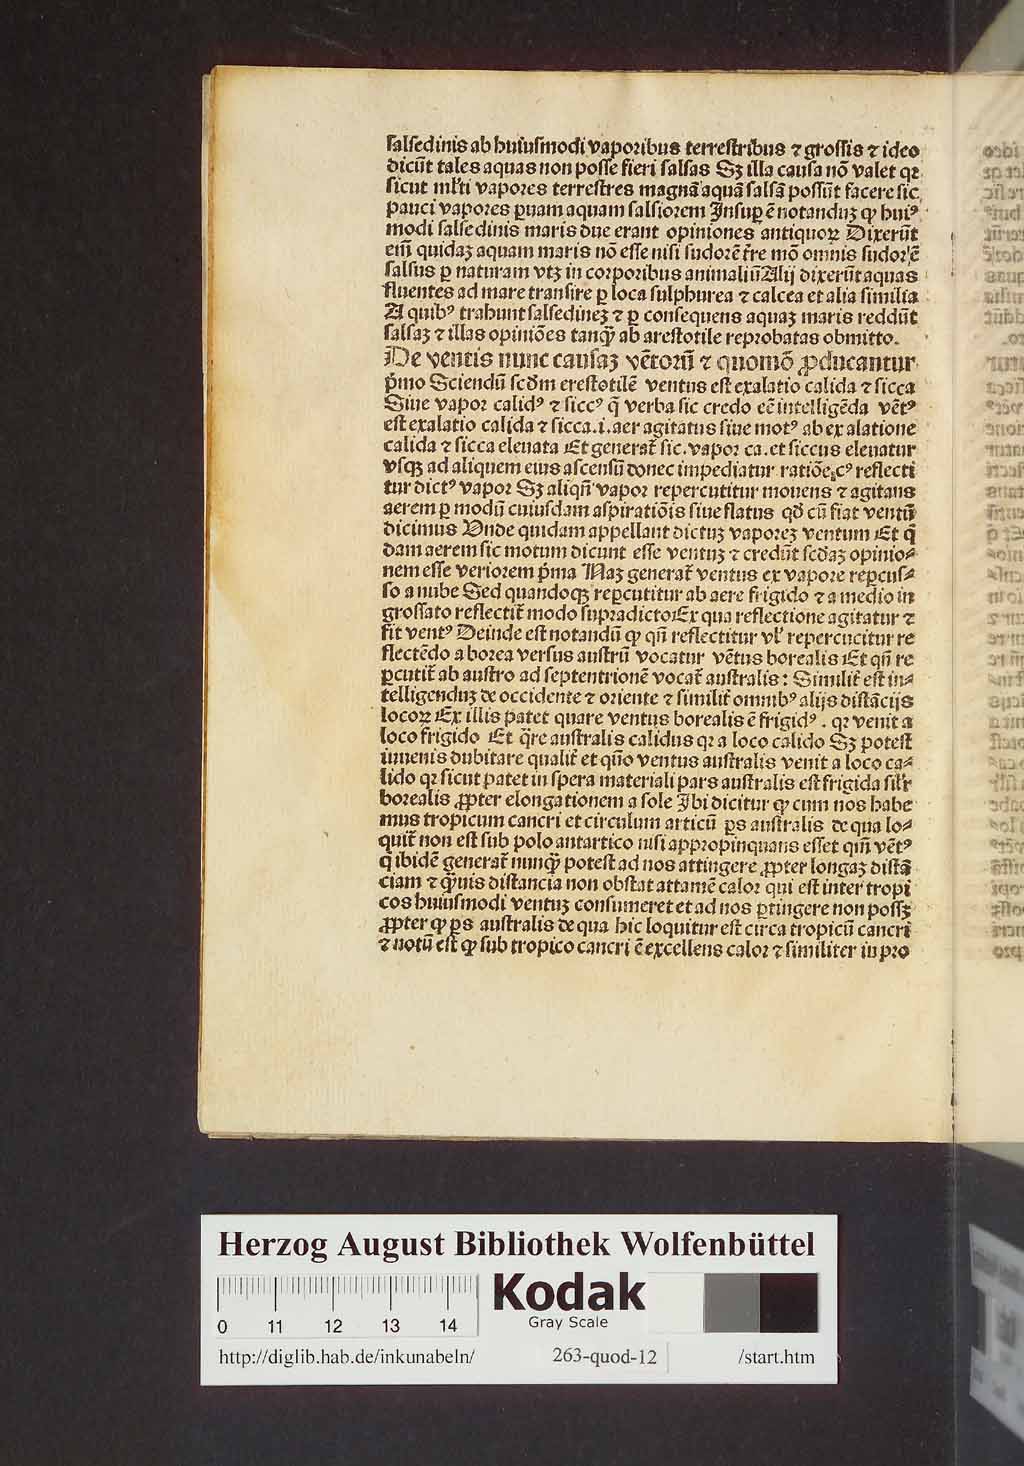 salsedinis ab huiusmodi vaporibus terrestribus ⁊ grossis ⁊ ideo
dicūt tales aquas non posse fieri salsas Sꝫ illa causa nō valet qꝛ
sicut ml'ti vapores terrestres magnā aquā salsā possūt facere sic
pauci vapores ꝑuam aquam salsiorem Insuꝑ ē notanduꝫ ꝙ huiꝰ
modi salsedinis maris due erant opiniones antiquoꝝ Dixerūt
eim̄ quidaꝫ aquam maris nō esse nisi sudorē t̄re mō omnis sudor ē
salsus ꝑ naturam vtꝫ in corporibus animaliū Alij dixerūt aquas
fluentes ad mare transire ꝑ loca sulphurea ⁊ calcea et alia similia
A quibꝰ trahunt salsedineꝫ ⁊ ꝑ consequens aquaꝫ maris reddūt
salsaꝫ ⁊ illas opiniōes tanqꝫ̄ ab arestotile reprobatas obmitto.
De ventis nunc causaꝫ vētorū ⁊ quomō ꝓducantur
p̄mo Sciendū scd̄m erestotilē ventus est exalatio calida ⁊ sicca
Siue vapor calidꝰ ⁊ siccꝰ q̄ verba sic credo eē intelligēda vētꝰ
est exalatio calida ⁊ sicca .i. aer agitatus siue motꝰ ab exalatione
calida ⁊ sicca eleuata Et generat̄ sic. vapor ca. et siccus eleuatur
vsqꝫ ad aliquem eius ascensū donec impediatur ratiōe, cꝰ reflecti
tur dictꝰ vapor Sꝫ aliqn̄ vapor repercutitur mouens ⁊ agitans
aerem ꝑ modū cuiusdam aspiratiōis siue flatus qd̄ cū fiat ventū
dicimus Vnde quidam appellant dictuꝫ vaporeꝫ ventum Et q̄
dam aerem sic motum dicunt esse ventuꝫ ⁊ credūt scd̄aꝫ opinio⸗
nem esse veriorem p̄ma Naꝫ generat̄ ventus ex vapore reꝑcus⸗
so a nube Sed quandoqꝫ reꝑcutitur ab aere frigido ⁊ a medio in
grossato reflectit̄ modo supradicto Ex qua reflectione agitatur ⁊
fit ventꝰ Deinde est notandū ꝙ qn̄ reflectitur vl' repercucitur re
flectēdo a borea versus austrū vocatur vētus borealis Et qn̄ re
ꝑcutit̄ ab austro ad septentrionē vocat̄ australis: Similit̄ est in⸗
telligenduꝫ de occidente ⁊ oriente ⁊ similit̄ omnibꝰ alijs distācijs
locoꝝ Ex illis patet quare ventus borealis ē frigidꝰ. qꝛ venit a
loco frigido Et q̄re australis calidus qꝛ a loco calido Sꝫ potest
iuuenis dubitare qualit̄ et quō ventus australis venit a loco ca⸗
lido qꝛ sicut patet in spera materiali pars australis est frigida silr̄
borealis ꝓpter elongationem a sole Ibi dicitur ꝙ cum nos habe
mus tropicum cancri et circulum articū ꝑs australis de qua lo⸗
quit̄ non est sub polo antartico nisi appropinquans esset qm̄ vētꝰ
q̄ ibidē generat̄ nunqꝫ̄ potest ad nos attingere ꝓpter longaꝫ distā
ciam ⁊ qꝫ̄uis distancia non obstat attamē calor qui est inter tropi
cos huiusmodi ventuꝫ consumeret et ad nos ꝑtingere non possꝫ
ꝓpter ꝙ ꝑs australis de qua hic loquitur est circa tropicū cancri
⁊ notū est ꝙ sub tropico cancri ē excellens calor ⁊ similiter in pro
Herzog August Bibliothek Wolfenbüttel
Kodak
Gray Scale
0 11 12 13 14
http://diglib.hab.de/inkunabeln/ 263-quod-12 /start.htm